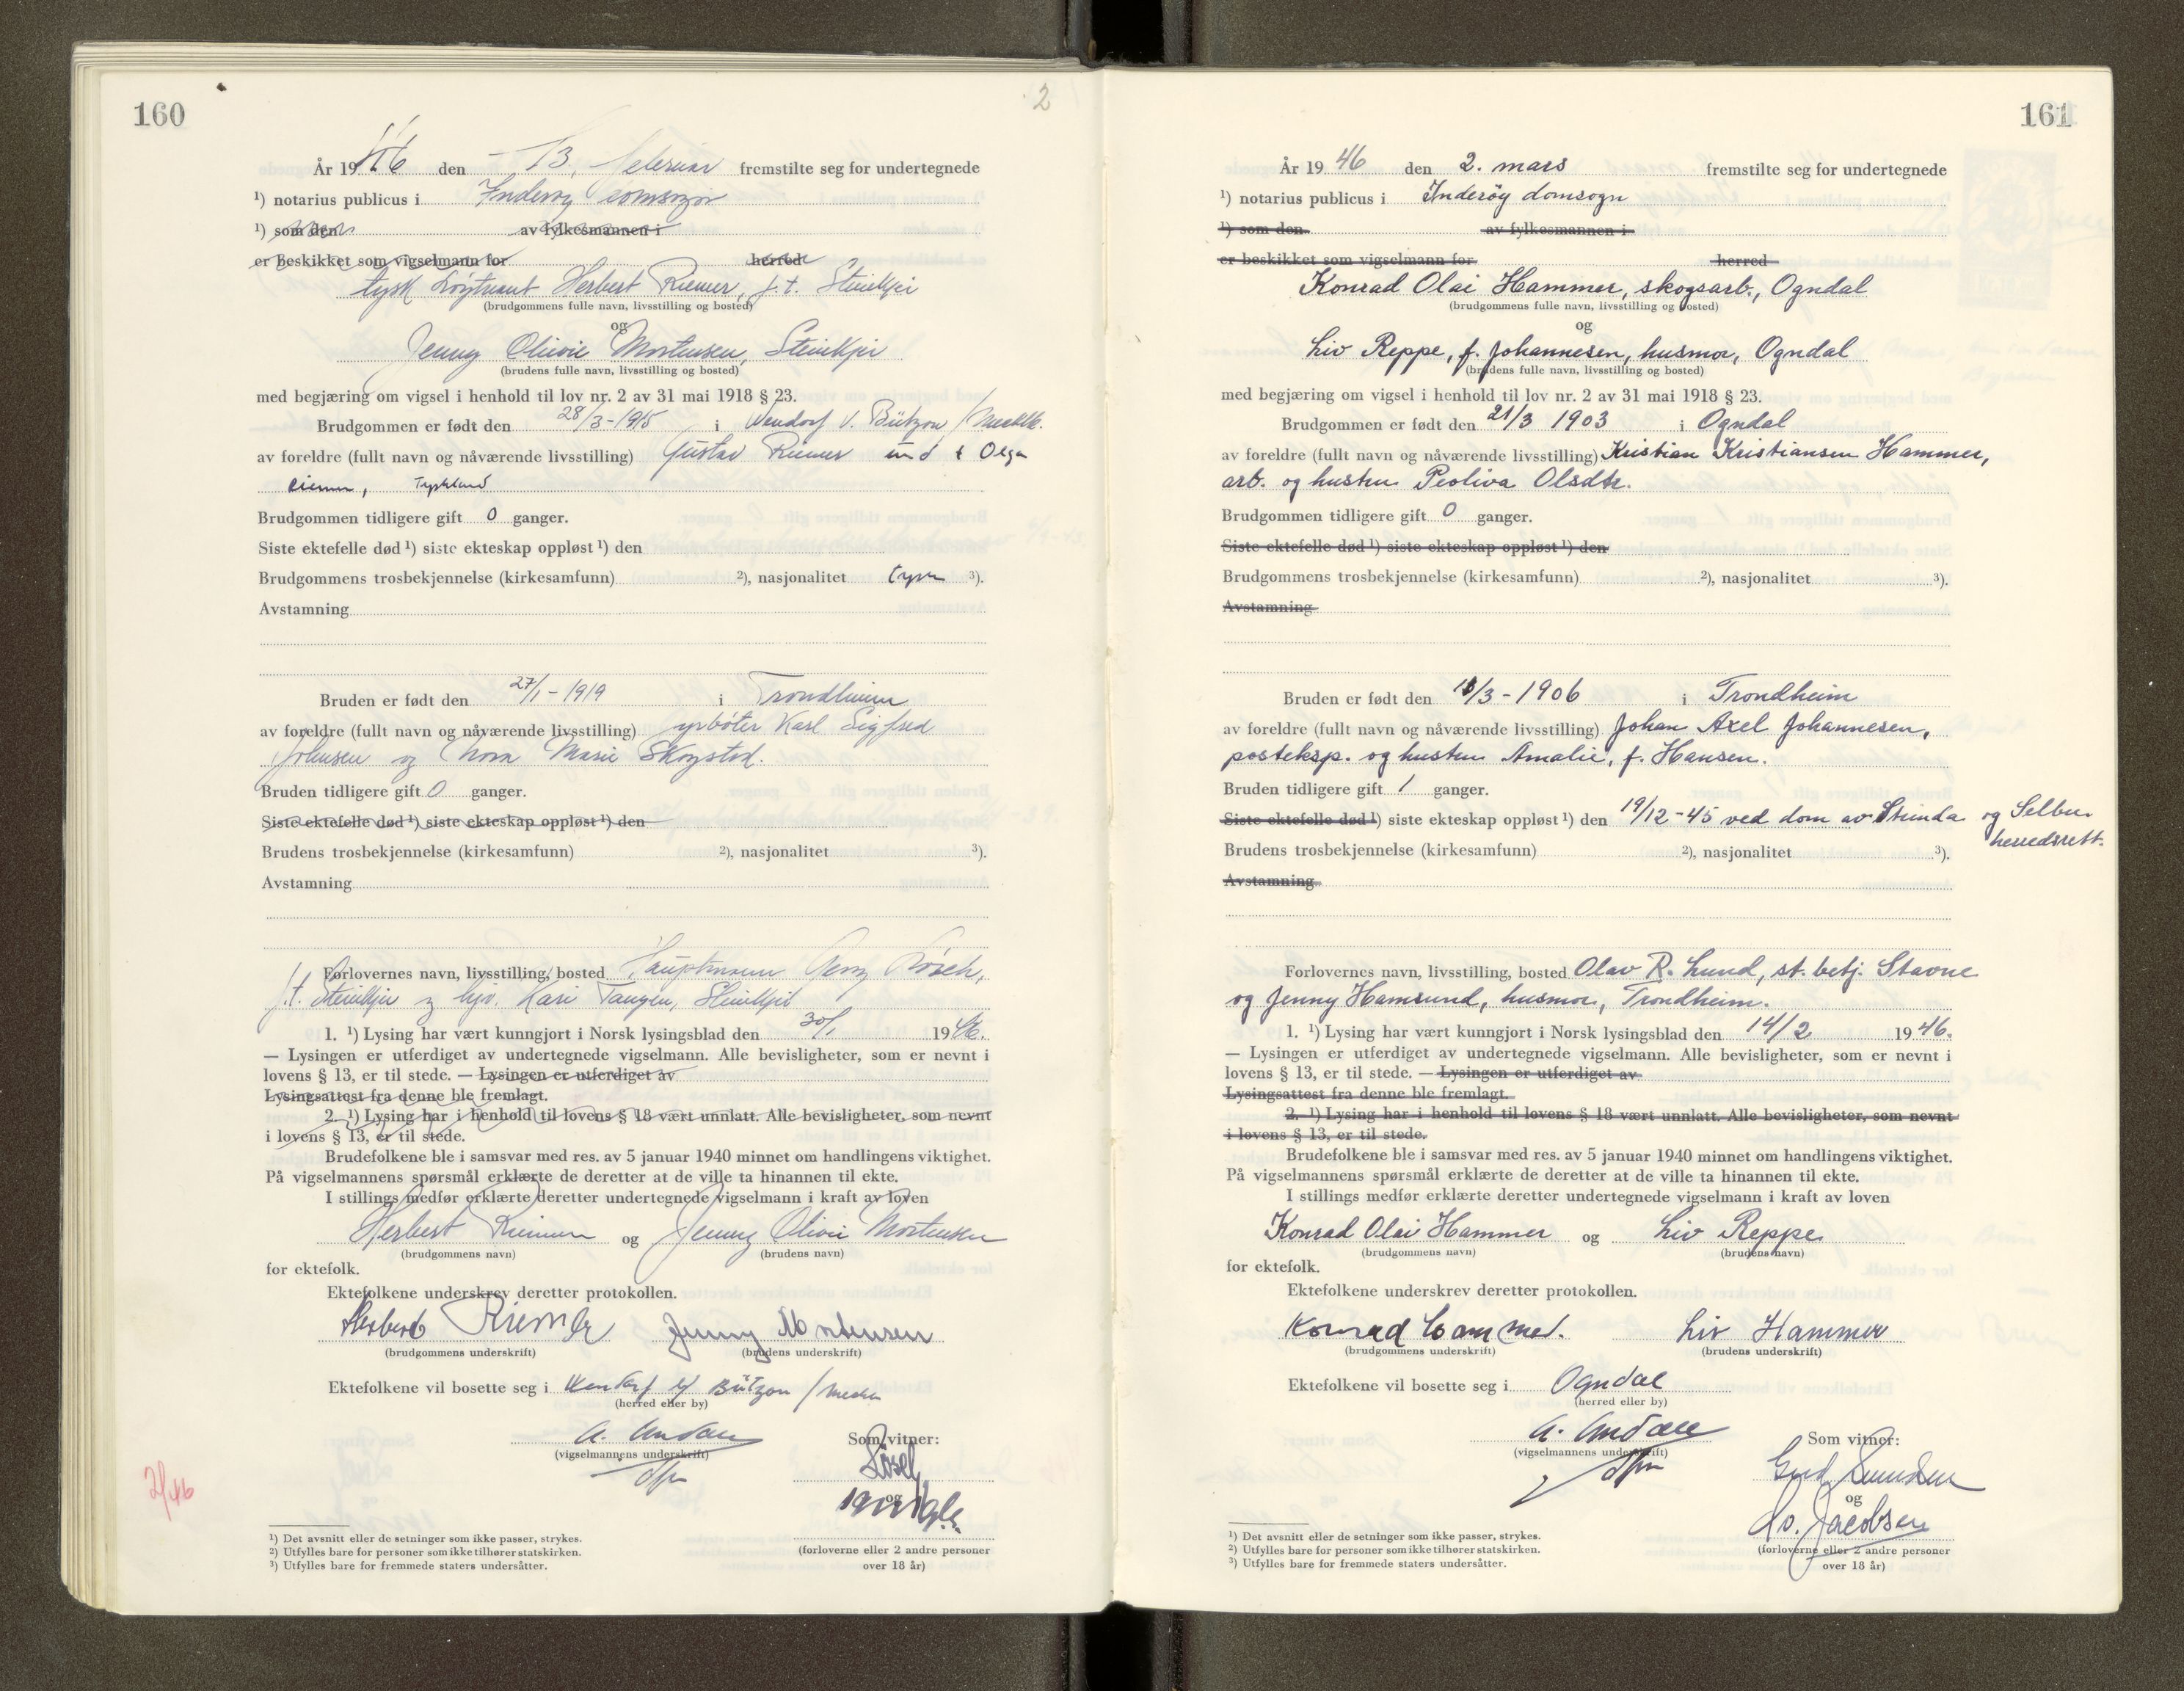 160
2
År 1946 den 13. februar fremstilte seg for undertegnede
¹) notarius publicus i Inderøy domsogn
¹) som den av fylkesmannen i
er beskikket som vigselmann for herred
tysk Løytnant Herbert Riemer, f.t. Steinkjer
(brudgommens fulle navn, livsstilling og bosted)
og
Jenny Olivie Mortensen, Steinkjer
(brudens fulle navn, livsstilling og bosted)
med begjæring om vigsel i henhold til lov nr. 2 av 31 mai 1918 § 23.
Brudgommen er født den 28/3-1915 i Wendorf v. Bützow / Meckl.
av foreldre (fullt navn og nåværende livsstilling) Gustav Riemer und Olga
Riemer, Tyskland
Brudgommen tidligere gift 0 ganger.
Siste ektefelle død ¹) siste ekteskap oppløst ¹) den
Brudgommens trosbekjennelse (kirkesamfunn) ²), nasjonalitet tysk ³).
Avstamning
Bruden er født den 27/1-1919 i Trondheim
av foreldre (fullt navn og nåværende livsstilling) fyrbøter Karl Sigfred
Johnsen og Nora Marie Skogstad.
Bruden tidligere gift 0 ganger.
Siste ektefelle død ¹) siste ekteskap oppløst ¹) den
Brudens trosbekjennelse (kirkesamfunn) ²), nasjonalitet ³).
Avstamning
Forlovernes navn, livsstilling, bosted Hauptmann Georg
f.t. Steinkjer og Kari Tangen, Steinkjer
1. ¹) Lysing har vært kunngjort i Norsk lysingsblad den 30/1 1946.
— Lysingen er utferdiget av undertegnede vigselmann. Alle bevisligheter, som er nevnt i
lovens § 13, er til stede. — Lysingen er utferdiget av
Lysingsattest fra denne ble fremlagt.
2. ¹) Lysing har i henhold til lovens § 18 vært unnlatt. Alle bevisligheter, som nevnt
i lovens § 13, er til stede.
Brudefolkene ble i samsvar med res. av 5 januar 1940 minnet om handlingens viktighet.
På vigselmannens spørsmål erklærte de deretter at de ville ta hinannen til ekte.
I stillings medfør erklærte deretter undertegnede vigselmann i kraft av loven
Herbert Riemer og Jenny Olivie Mortensen
(brudgommens navn) (brudens navn)
for ektefolk.
Ektefolkene underskrev deretter protokollen.
Herbert Riemer Jenny Mortensen
(brudgommens underskrift) (brudens underskrift)
Ektefolkene vil bosette seg i Wendorf b/ Bützow / Meckl
(herred eller by)
A. Andall
(vigselmannens underskrift)
dfm
Som vitner:
og
(forloverne eller 2 andre personer
over 18 år)
2/46
¹) Det avsnitt eller de setninger som ikke passer, strykes.
²) Utfylles bare for personer som ikke tilhører statskirken.
³) Utfylles bare for fremmede staters undersåtter.
161
År 1946 den 2. mars fremstilte seg for undertegnede
¹) notarius publicus i Inderøy domsogn
¹) som den av fylkesmannen i
er beskikket som vigselmann for herred
Konrad Olai Hammer, skogsarb., Ogndal
(brudgommens fulle navn, livsstilling og bosted)
og
Liv Reppe, f. Johannesen, husmor, Ogndal
(brudens fulle navn, livsstilling og bosted)
med begjæring om vigsel i henhold til lov nr. 2 av 31 mai 1918 § 23.
Brudgommen er født den 21/3 1903 i Ogndal
av foreldre (fullt navn og nåværende livsstilling) Kristian Kristiansen Hammer,
arb. og hustru Peoliva Olsdtr.
Brudgommen tidligere gift 0 ganger.
Siste ektefelle død ¹) siste ekteskap oppløst ¹) den
Brudgommens trosbekjennelse (kirkesamfunn) ²), nasjonalitet ³).
Avstamning
Bruden er født den /3-1906 i Trondheim
av foreldre (fullt navn og nåværende livsstilling) Johan Axel Johannesen,
posteksp. og hustru Amalie, f. Hansen.
Bruden tidligere gift 1 ganger.
Siste ektefelle død ¹) siste ekteskap oppløst ¹) den 19/12-45 ved dom av Strinda og Selbu
herredsrett.
Brudens trosbekjennelse (kirkesamfunn) ²), nasjonalitet ³).
Avstamning
Forlovernes navn, livsstilling, bosted Olav R. Lund, st. betj. Stavne
og Jenny Hamsund, husmor, Trondheim.
1. ¹) Lysing har vært kunngjort i Norsk lysingsblad den 14/2 1946.
— Lysingen er utferdiget av undertegnede vigselmann. Alle bevisligheter, som er nevnt i
lovens § 13, er til stede. — Lysingen er utferdiget av
Lysingsattest fra denne ble fremlagt.
2. ¹) Lysing har i henhold til lovens § 18 vært unnlatt. Alle bevisligheter, som nevnt
i lovens § 13, er til stede.
Brudefolkene ble i samsvar med res. av 5 januar 1940 minnet om handlingens viktighet.
På vigselmannens spørsmål erklærte de deretter at de ville ta hinannen til ekte.
I stillings medfør erklærte deretter undertegnede vigselmann i kraft av loven
Konrad Olai Hammer og Liv Reppe
(brudgommens navn) (brudens navn)
for ektefolk.
Ektefolkene underskrev deretter protokollen.
Konrad Hammer. Liv Hammer
(brudgommens underskrift) (brudens underskrift)
Ektefolkene vil bosette seg i Ogndal
(herred eller by)
A. Andall
(vigselmannens underskrift)
dfm
Som vitner:
og
Jacobsen
(forloverne eller 2 andre personer
over 18 år)
¹) Det avsnitt eller de setninger som ikke passer, strykes.
²) Utfylles bare for personer som ikke tilhører statskirken.
³) Utfylles bare for fremmede staters undersåtter.